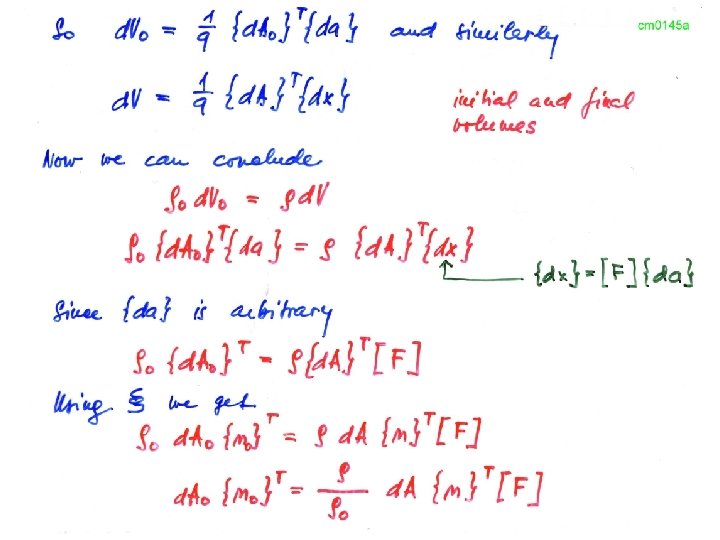 So dV₀ = 1/9 {dA₀}ᵀ{da} and similarly
cm0145a
dV = 1/9 {dA}ᵀ{dx}
initial and final
volumes
Now we can conclude
ρ₀ dV₀ = ρ dV
ρ₀ {dA₀}ᵀ{da} = ρ {dA}ᵀ{dx}
{dx} = [F]{da}
Since {da} is arbitrary
ρ₀ {dA₀}ᵀ = ρ{dA}ᵀ[F]
Using § we get
ρ₀ dA₀ {n₀}ᵀ = ρ dA {n}ᵀ[F]
dA₀ {n₀}ᵀ = ρ/ρ₀ dA {n}ᵀ[F]